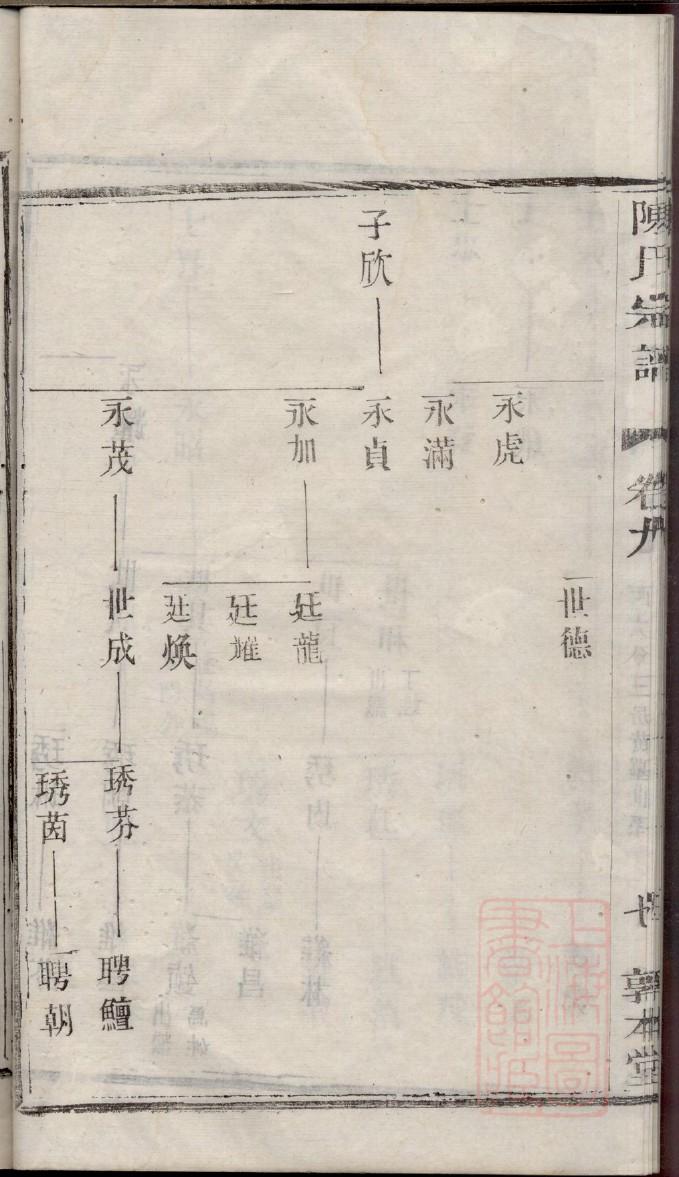 陳氏宗譜
卷九
敦本堂
世德
永虎
永滿
子欣
永貞
永加
廷龍
廷耀
廷煥
永茂
世成
琇芬
聘鱣
琇茵
聘朝